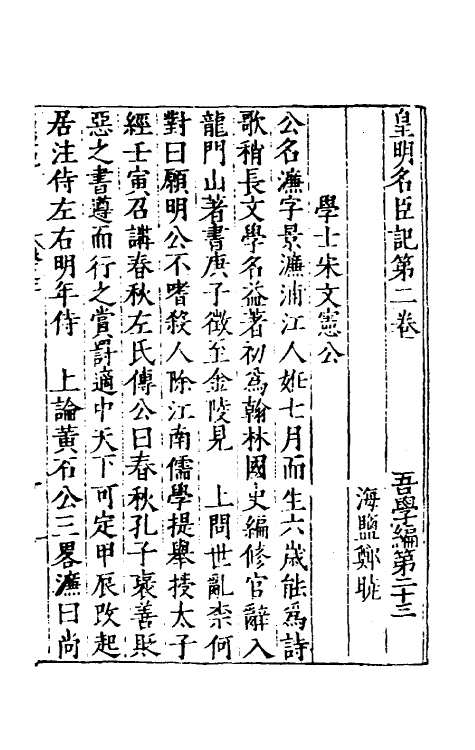 皇明名臣記第二卷 吾學編第二十三
海鹽鄭曉
學士宋文憲公
公名濂字景濂浦江人姙七月而生六歲能爲詩
歌稍長文學名益著初爲翰林國史編修官辭入
龍門山著書庚子徵至金陵見 上問世亂柰何
對曰願明公不嗜殺人除江南儒學提舉授太子
經壬寅召講春秋左氏傳公曰春秋孔子襃善貶
惡之書遵而行之賞罰適中天下可定甲辰改起
居注侍左右明年侍 上論黃石公三畧濂曰尚